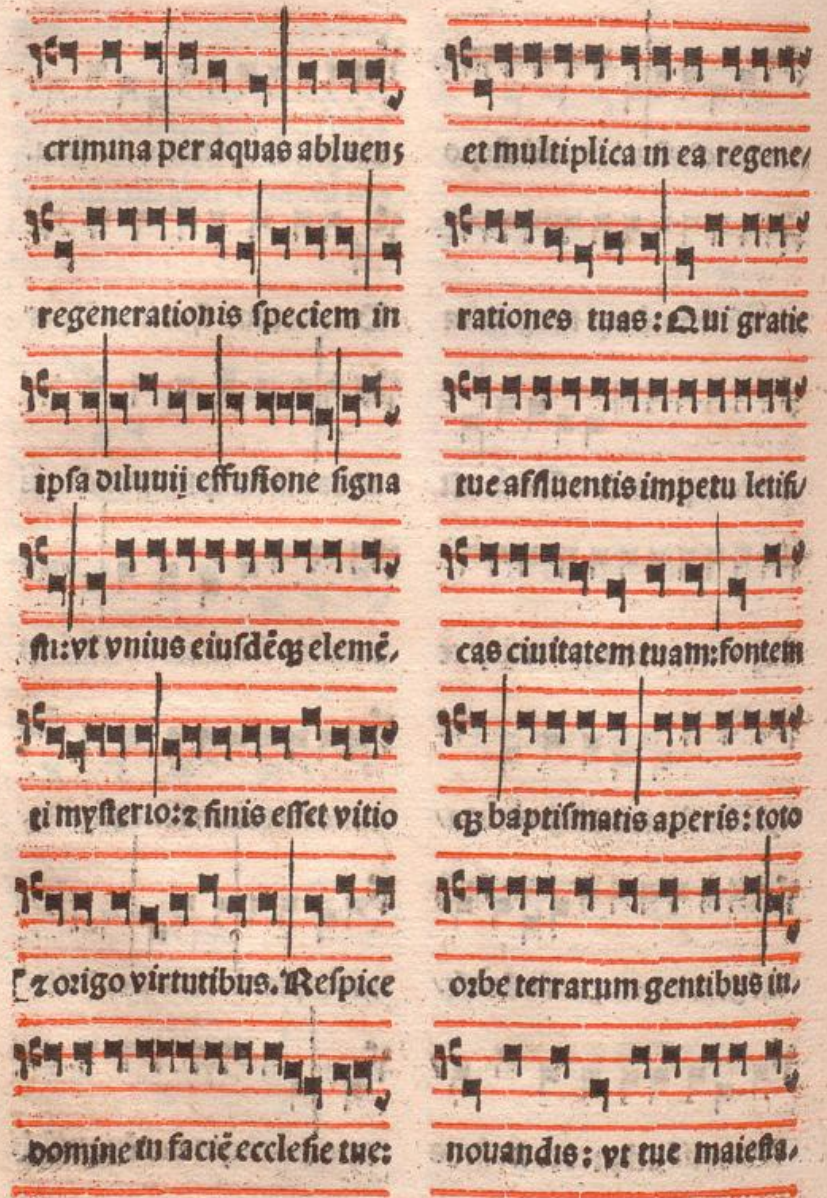 crimina per aquas abluens
regenerationis ſpeciem in
ipſa diluuij effuſione ſigna
ſti:vt vnius eiuſdēqꝫ elemē/
ti myſterio:⁊ finis eſſet vitio
[⁊ origo virtutibus. Reſpice
domine in faciē eccleſie tue:
et multiplica in ea regene/
rationes tuas: Qui gratie
tue affluentis impetu letifi/
cas ciuitatem tuam:fontem
qꝫ baptiſmatis aperis: toto
orbe terrarum gentibus in/
nouandis: vt tue maieſta/